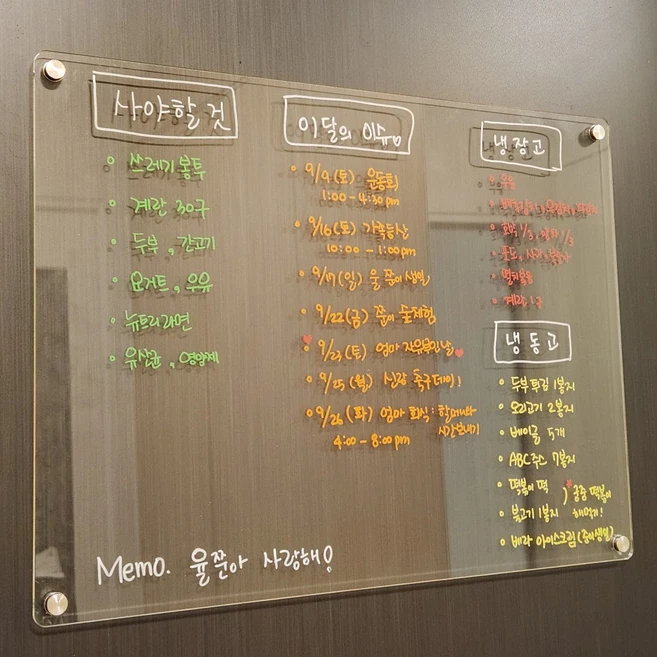 사야할 것
• 쓰레기 봉투
• 계란 30구
• 두부, 간고기
• 요거트, 우유
• 뉴트리라면
• 유산균, 영양제
이달의 이슈
• 9/9 (토) 운동회
1:00 - 4:30 pm
• 9/16 (토) 가족등산
10:00 - 1:00pm
• 9/17 (일) 율쭌이 생일
• 9/22 (금) 쭌이 숲체험
• 9/23 (토) 엄마 자유부인날
• 9/25 (월) 신랑 축구데이!
• 9/26 (화) 엄마 회식: 할머니와
시간보내기
4:00 - 8:00 pm
냉장고
• 우유
• 호박 1/3,
• 포도, 사과,
• 멸치볶음
• 계란 1구
냉동고
• 두부튀김 1봉지
• 오리고기 2봉지
• 베이글 5개
• ABC주스 7봉지
• 떡볶이 떡
• 불고기 1봉지
) * 궁중 떡볶이
해먹기!
• 베라 아이스크림 (쭌이생일)
Memo. 율쭌아 사랑해!